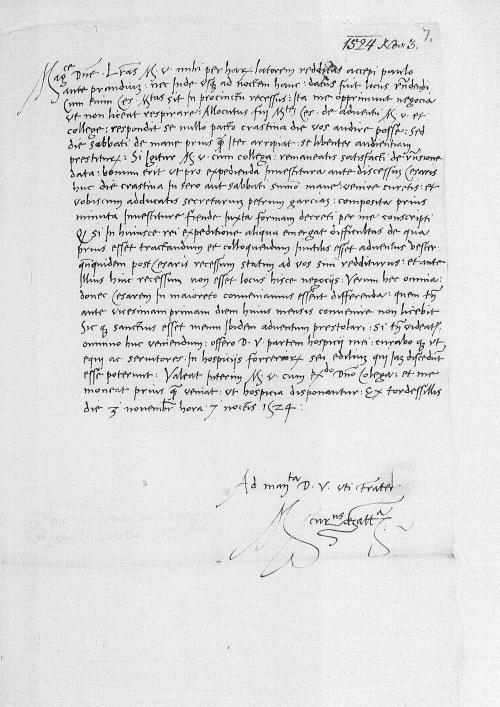 7.
1524 Nov 3.
Mag^ce Dne. Lras M. V. mihi per harum latorem redditas accepi paulo
ante prandium: nec inde usq ad noctem hanc: datus fuit locus rndendi
Cum enim Ces. M^tas sit in procinctu recessus: Ita me opprimunt negocia
ut non liceat respirare. Allocutus fui M^ti Ces. de adventu M. V. et
college: respondit se nullo pacto crastina die vos audire posse. Sed
die sabbati de mane prius q iter arripiat: se libenter audientiam
prestiturum. Si igitur M. V. cum collega: remaneatis satisfacti de
data: bonum erit ut pro expedienda investitura ante discessum Cesaris
huc die crastina in sero aut sabbati summo mane: venire curetis: et
vobiscum adducatis secretarium petrum garcias: composita prius
minuta investiture fiende iuxta formam decreti per me conscripti
Q si in huiusce rei expeditione aliqua emergat difficultas de qua
prius esset tractandum et colloquendum inutilis esset adventus vestr
quandoquidem post Cesaris recessum statim ad vos sim rediturus: et ante
illius hinc recessum non esset locus hisce negociis. Verum hec omnia:
donec Cesarem in maioreto conveniamus essent differenda: quem tn
ante vicesimam primam diem huius mensis convenire non licebit
Sic q sanctius esset meum ibidem adventum prestolari. Si tn videat
omnino huc veniendum: offero D. V. partem hospicii mei: curabo q ut
equi ac servitores in hospiciis forreriorum seu edilium qui iam discedunt
esse poterunt. Valeat interim M. V. cum Ex^do Dno Colega: et me
moneat prius q veniat: ut hospicia disponantur. Ex tordessillis
die 3 novembr hora 7 noctis 1524.
Ad man^ta D. V. uti frater
Mercurinus de gatt^a